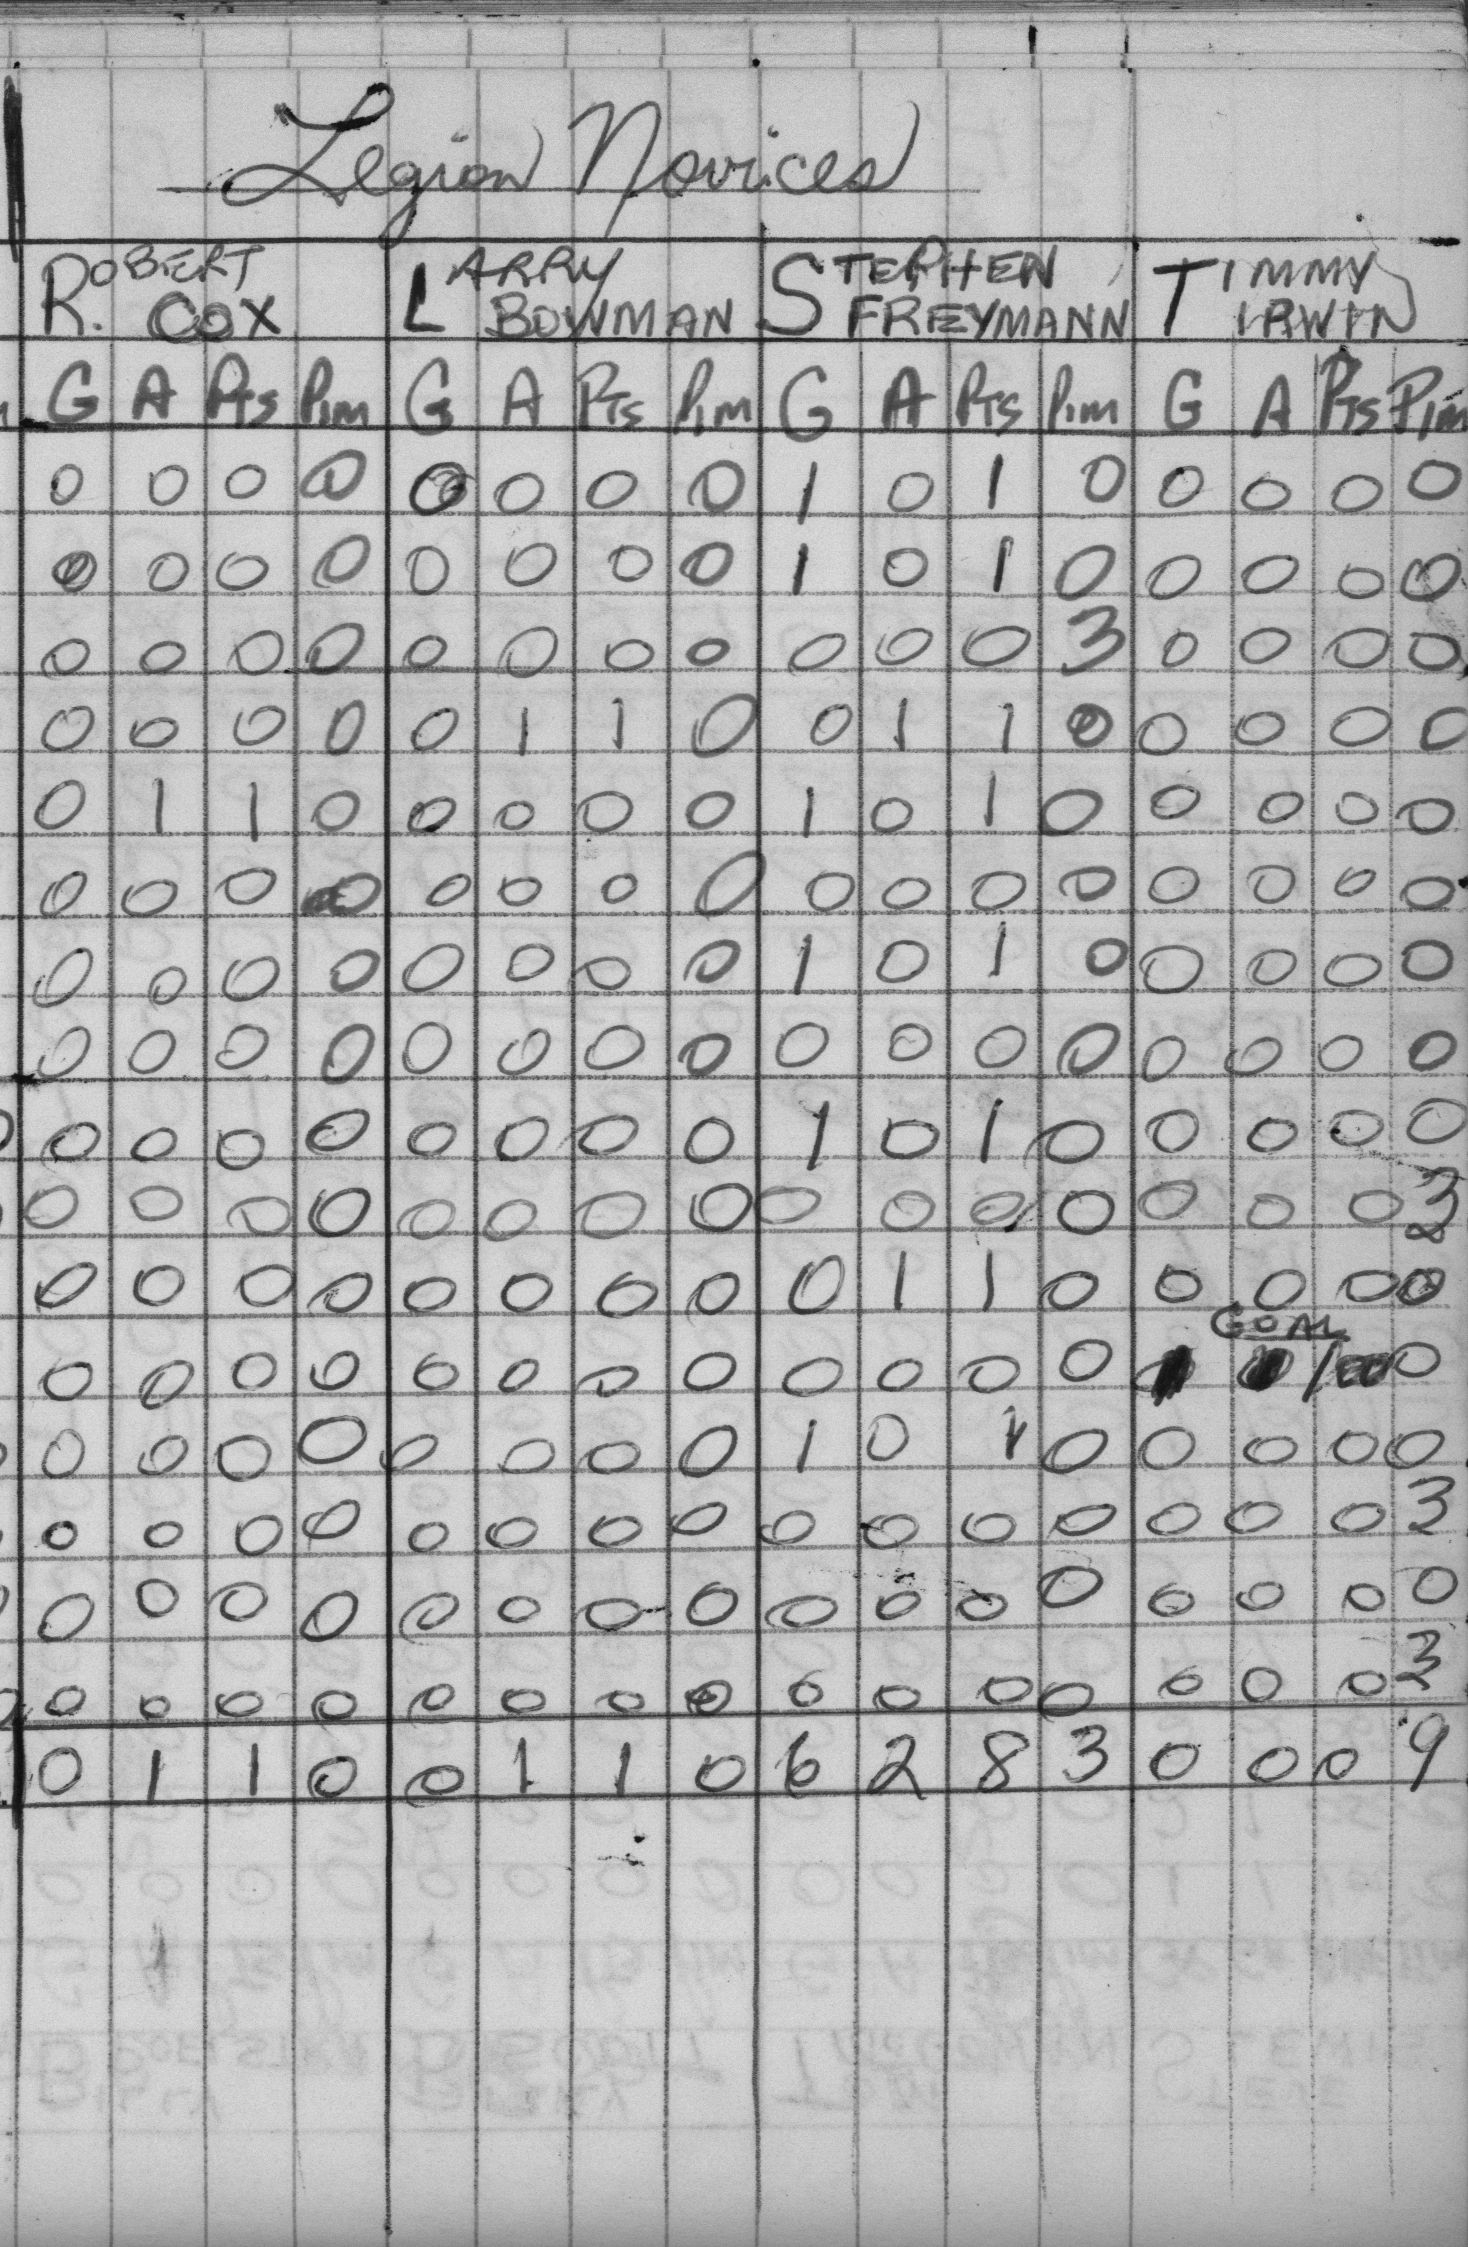 Legion Novices
ROBERT LARRY STEPHEN TIMMY
COX BOWMAN FREYMANN IRWIN
G A Pts Pim G A Pts Pim G A Pts Pim G A Pts Pim
0 0 0 0 0 0 0 0 1 0 1 0 0 0 0 0
0 0 0 0 0 0 0 0 1 0 1 0 0 0 0 0
0 0 0 0 0 0 0 0 0 0 0 3 0 0 0 0
0 0 0 0 0 1 1 0 0 1 1 0 0 0 0 0
0 1 1 0 0 0 0 0 1 0 1 0 0 0 0 0
0 0 0 0 0 0 0 0 0 0 0 0 0 0 0 0
0 0 0 0 0 0 0 0 1 0 1 0 0 0 0 0
0 0 0 0 0 0 0 0 0 0 0 0 0 0 0 0
0 0 0 0 0 0 0 0 1 0 1 0 0 0 0 0
0 0 0 0 0 0 0 0 0 0 0 0 0 0 0 3
0 0 0 0 0 0 0 0 0 1 1 0 0 0 0 0
GOAL
0 0 0 0 0 0 0 0 0 0 0 0 0
0 0 0 0 0 0 0 0 1 0 1 0 0 0 0 0
0 0 0 0 0 0 0 0 0 0 0 0 0 0 0 3
0 0 0 0 0 0 0 0 0 0 0 0 0 0 0 0
0 0 0 0 0 0 0 0 0 0 0 0 0 0 0 3
0 1 1 0 0 1 1 0 6 2 8 3 0 0 0 9